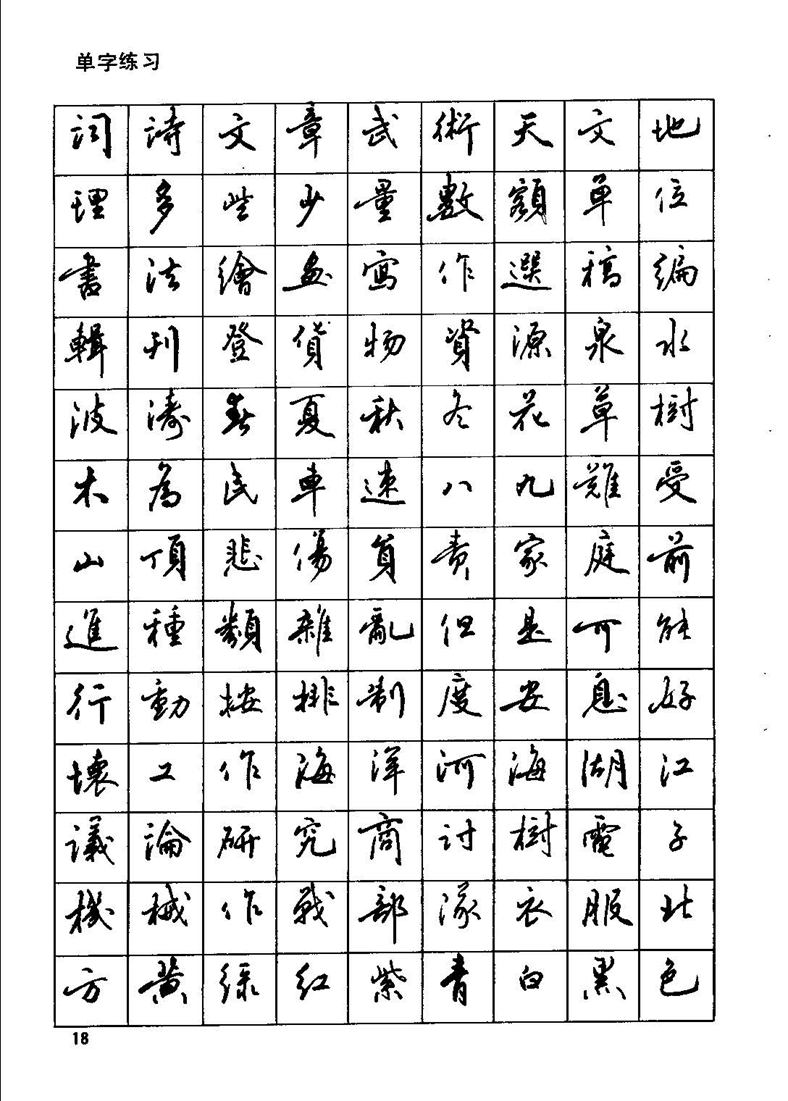 单字练习
詞詩文章武術天文地
理多些少量數額單位
書法繪畫寫作選稿編
輯刊登貨物資源泉水
波濤春夏秋冬花草樹
木為民車速八九難受
山頂悲傷負責家庭前
進種類雜亂但是可能
行動按排制度安息好
壞工作海洋河海湖江
議論研究商討樹電子
機械作戰部隊衣服北
方黄绿红紫青白黑色
18